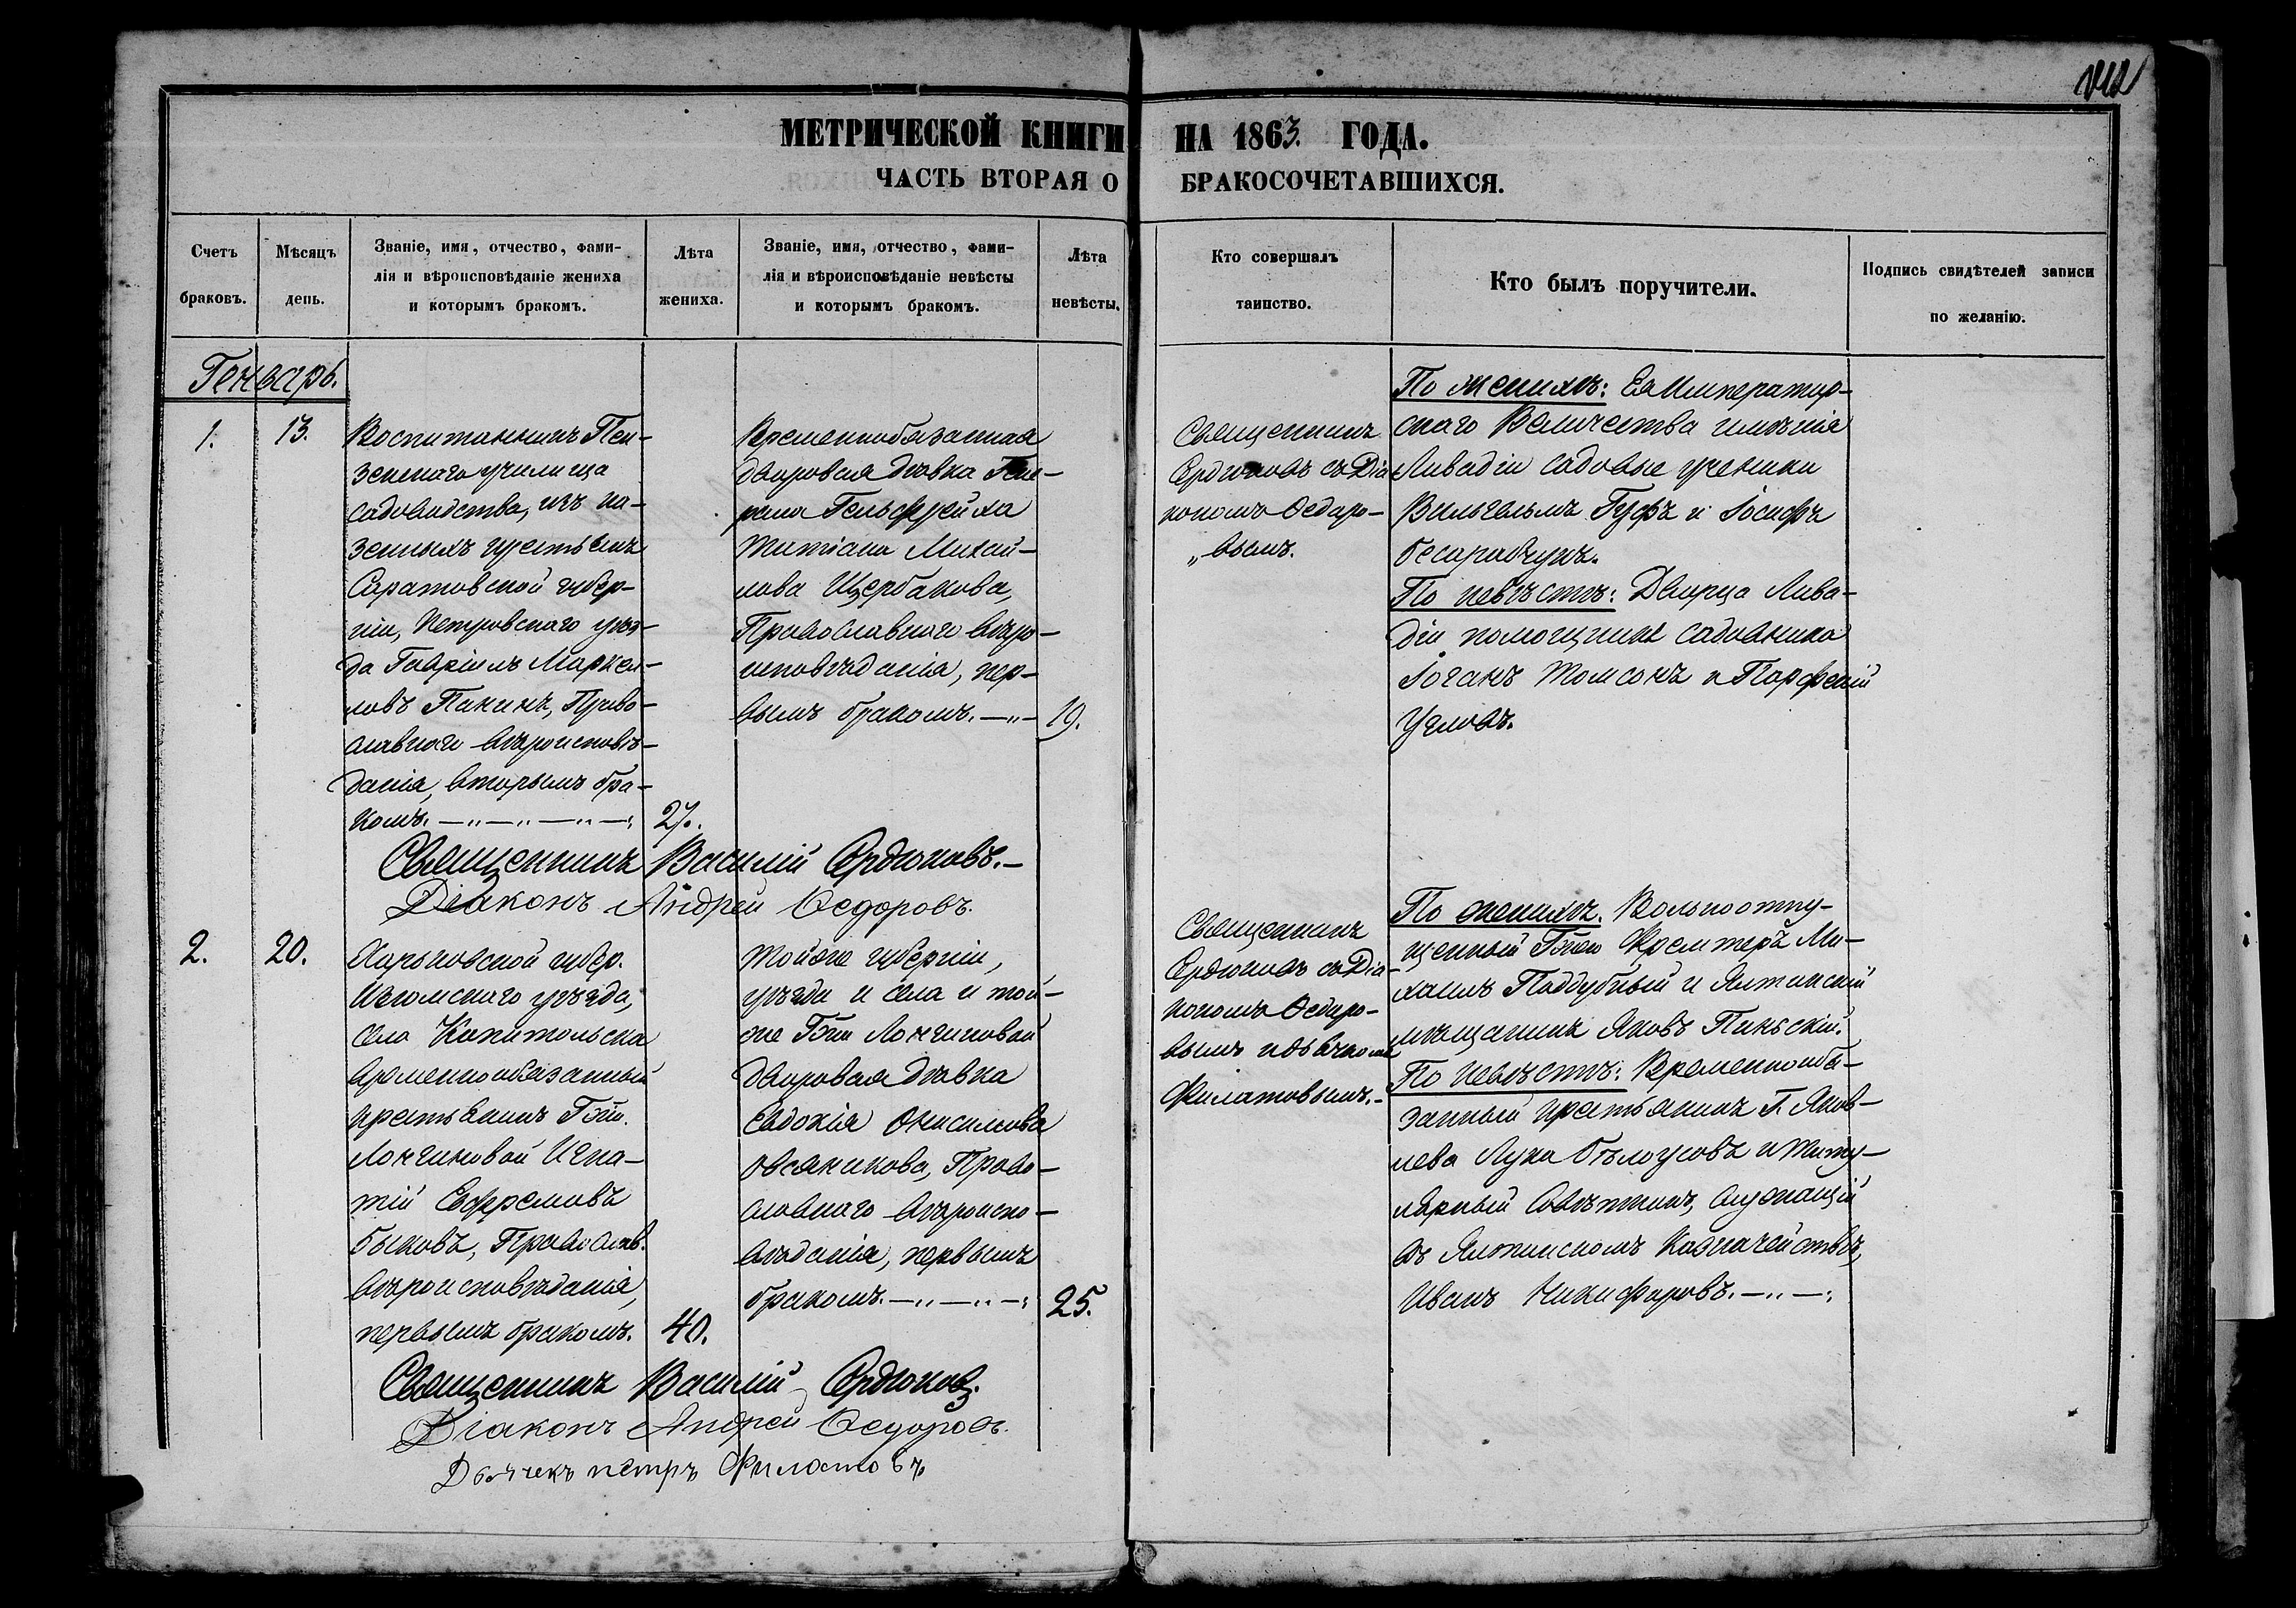 МЕТРИЧЕСКОЙ КНИГИ НА 1863. ГОДА.
ЧАСТЬ ВТОРАЯ О БРАКОСОЧЕТАВШИХСЯ.
Счетъ
браковъ.
Мѣсяцъ
день.
Званіе, имя, отчество, фами-
лія и вѣроисповѣданіе жениха
и которымъ бракомъ.
Лѣта
жениха.
Званіе, имя, отчество, фами-
лія и вѣроисповѣданіе невѣсты
и которымъ бракомъ.
Лѣта
невѣсты.
Кто совершалъ
таинство.
Кто былъ поручители.
Подпись свидѣтелей записи
по желанію.
Генварь.
1.
13.
Воспитанникъ Пен-
зенскаго училища
садоводства, изъ ка-
зенныхъ крестьянъ
Саратовской губер-
ніи, Петровскаго уѣз-
да Гавріилъ Маркел-
ловъ Панинъ, Право-
славнаго вѣроисповѣ-
данія, вторымъ бра-
комъ. —„—„—„—:
27.
Временнообязанная
дворовая дѣвка Гене-
рала Гельфрейха
Татіана Михай-
лова Щербакова,
Православнаго вѣро-
исповѣданія, пер-
вымъ бракомъ. —„—
19.
Священникъ
Сердюковъ съ Діа
кономъ Ѳедоро-
„вымъ.
По женихѣ: Ея Император-
скаго Величества имѣнія
Ливадіи садовые ученики
Вильгельмъ Гуфъ и Іосифъ
По невѣстѣ: Дворца Лива-
діи помощники садовника
Іоганъ Томсонъ и Парфеній
Угловъ.
Священникъ Василій Сердюковъ.—
Діаконъ Андрей Ѳедоровъ.
2.
20.
Харьковской губер.
Изюмскаго уѣзда,
села Копитольска
временнообязанный
крестьянинъ Г-жи
Лонгиновой Игна-
тій Ефремовъ
Быковъ, Православ.
вѣроисповѣданія,
первымъ бракомъ.
40.
Той же губерніи,
уѣзда и села и той-
же Г-жи Лонгиновой
дворовая дѣвка
Евдокія Онисимова
Овсяникова, Право-
славнаго вѣроиспо-
вѣданія, первымъ
бракомъ. —„—„—:
25.
Священникъ
Сердюковъ съ Діа-
кономъ Ѳедоро-
вымъ и дьячкомъ
Филатовымъ.-
По женихѣ. Вольноотпу-
щенный Г-жею Кремтеръ Ми-
хаилъ Поддубный и Ялтинскій
мѣщанинъ Яковъ Пинскій.
По невѣстѣ: Временнообя-
занный крестьянинъ Г. Яков-
лева Лука Бѣлоусовъ и титу-
лярный совѣтникъ, служащій
въ Ялтинскомъ Казначействѣ,
Иванъ Никифоровъ.—„—:
Священникъ Василій Сердюковъ.
Діаконъ Андрей Ѳедоровъ.
Дьячекъ петръ Филатовъ